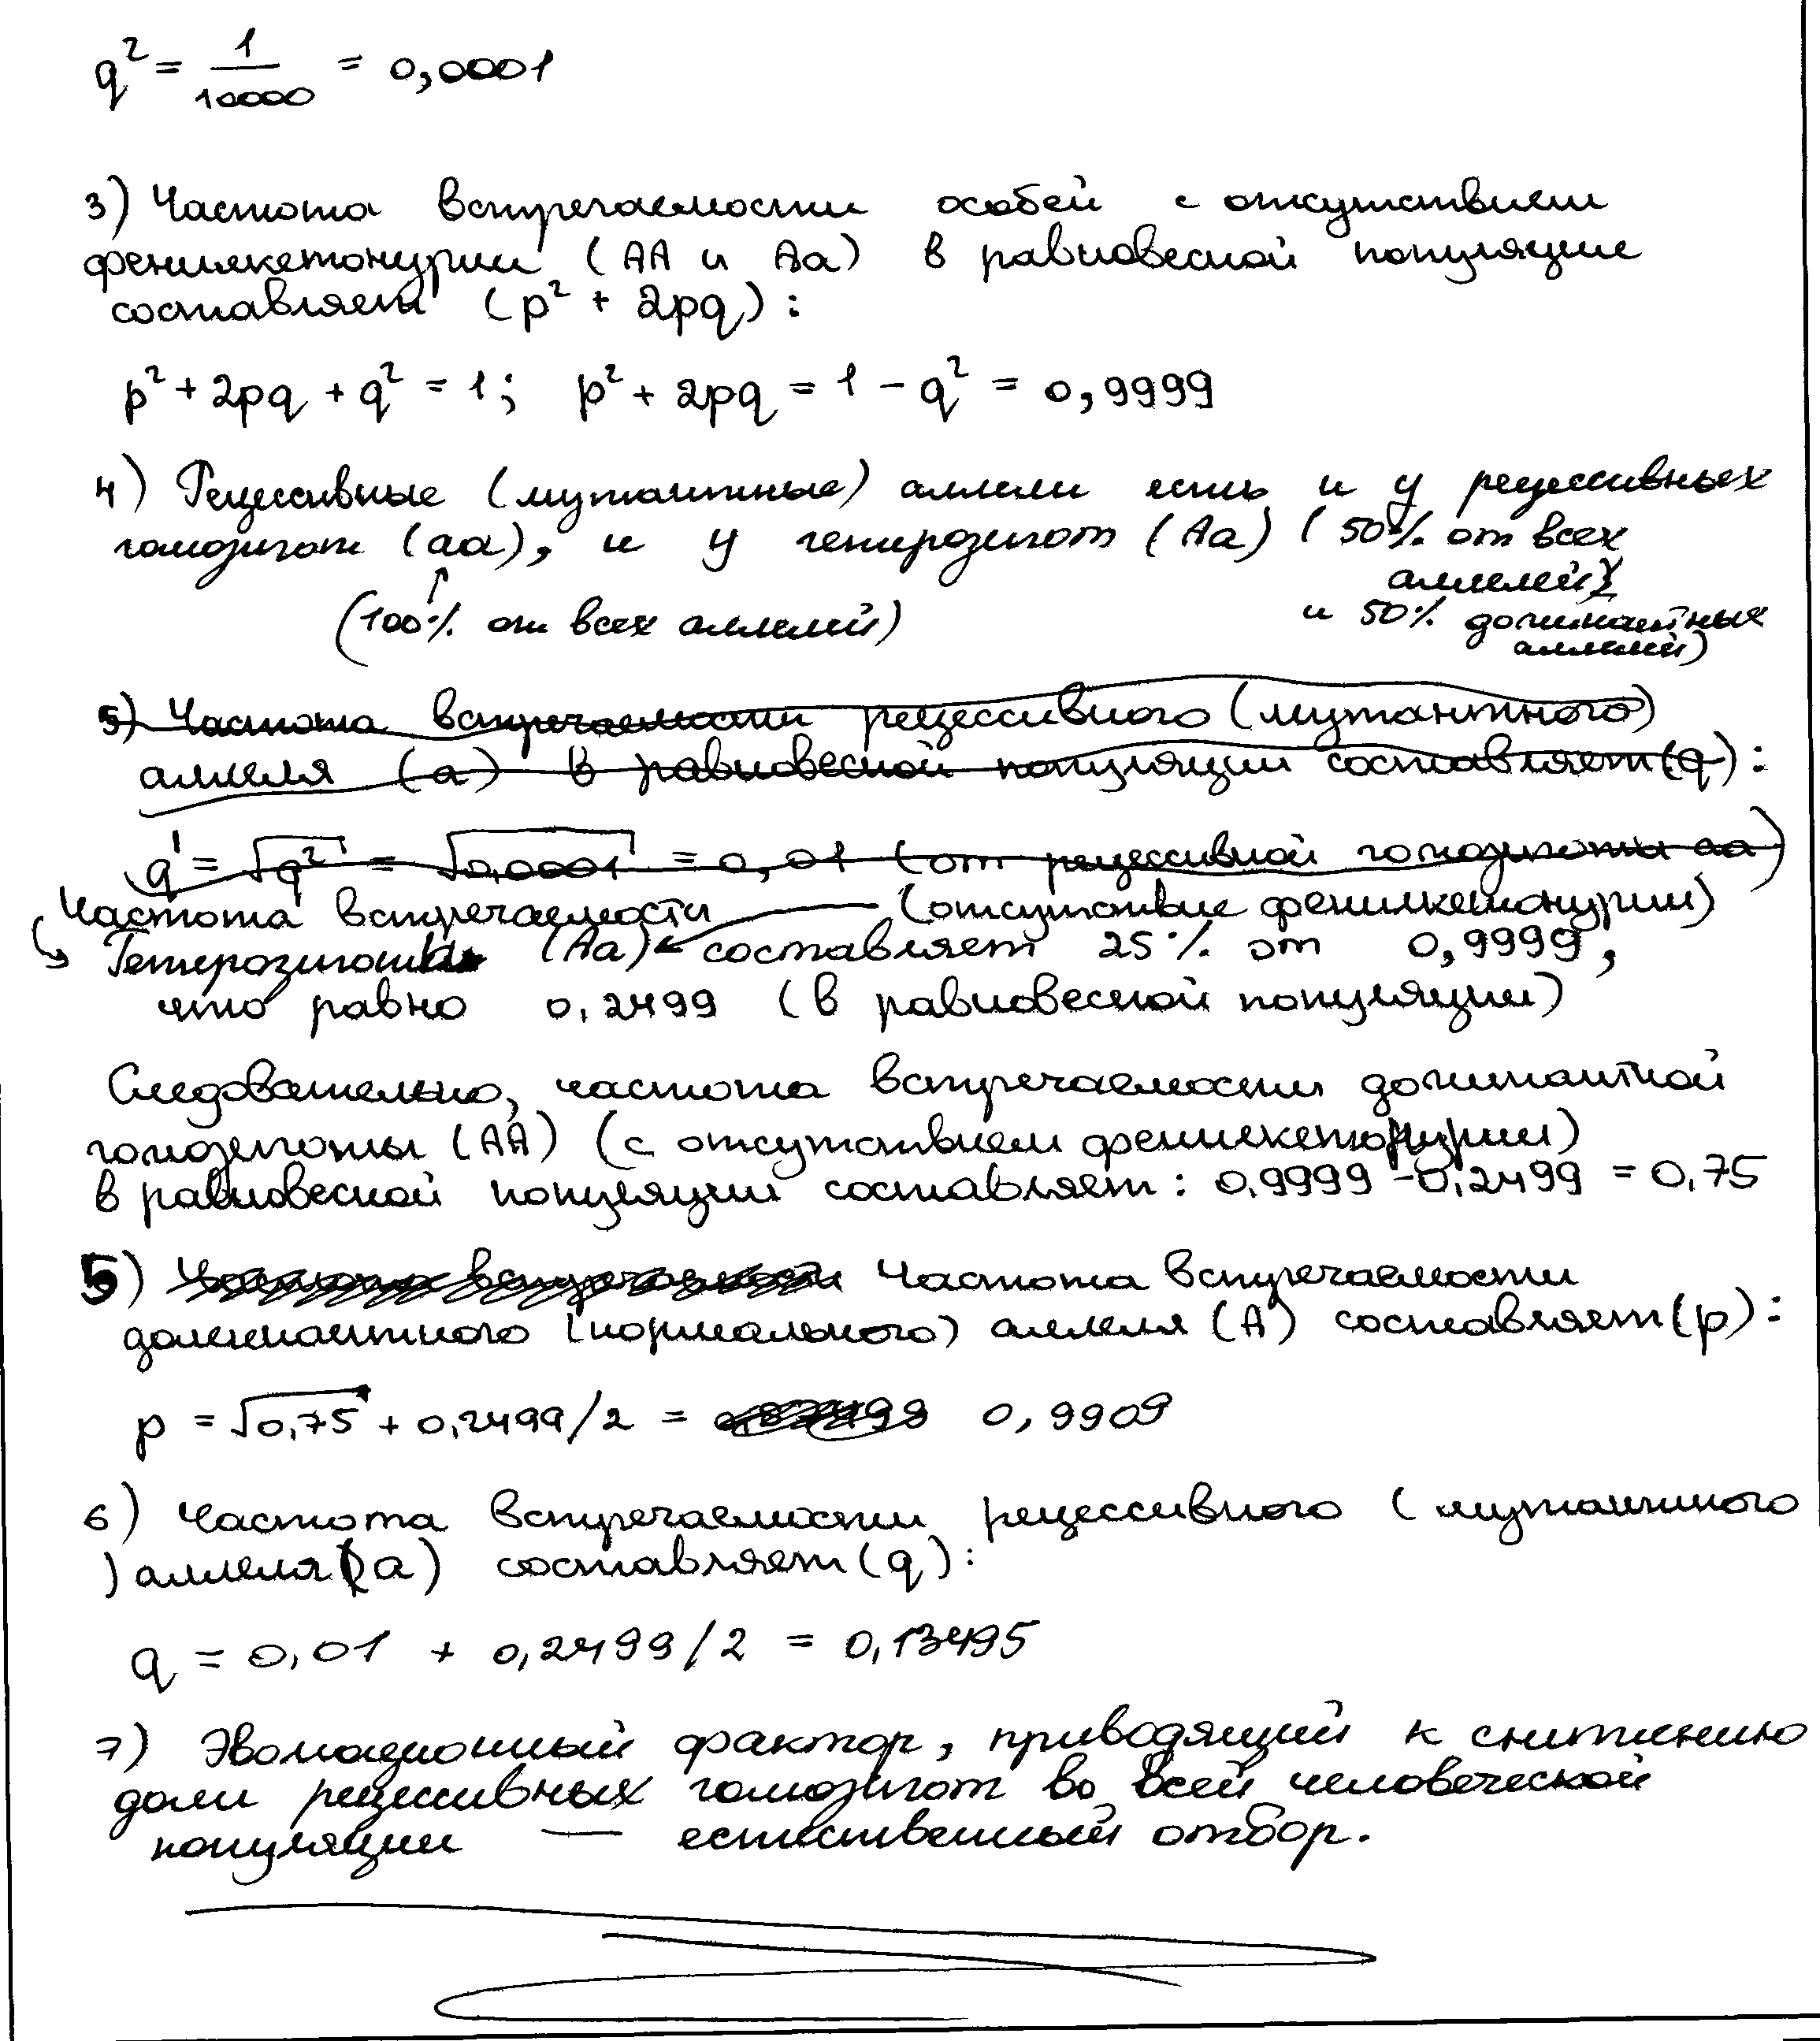 q² = 1/10000 = 0,0001
3) Частота встречаемости особей с отсутствием
фенилкетонурии (АА и Аа) в равновесной популяции
составляет (p² + 2pq):
p² + 2pq + q² = 1; p² + 2pq = 1 - q² = 0,9999
4) Рецессивные (мутантные) аллели есть и у рецессивных
гомозигот (аа), и у гетерозигот (Аа) (50% от всех
аллелей)
(100% от всех аллелей)
и 50% доминантных
аллелей)
5) Частота встречаемости рецессивного (мутантного)
аллеля (а) в равновесной популяции составляет (q):
q = √q² = √0,0001 = 0,01 (от рецессивной гомозиготы аа)
Частота встречаемости (отсутствие фенилкетонурии)
Гетерозиготы (Аа) составляет 25% от 0,9999,
что равно 0,2499 (в равновесной популяции)
Следовательно, частота встречаемости доминантной
гомозиготы (АА) (с отсутствием фенилкетонурии)
в равновесной популяции составляет: 0,9999 - 0,2499 = 0,75
5) Частота встречаемости Частота встречаемости
доминантного (нормального) аллеля (А) составляет (p):
p = √0,75 + 0,2499/2 = 0,9909
6) Частота встречаемости рецессивного (мутантного
) аллеля (а) составляет (q):
q = 0,01 + 0,2499/2 = 0,13495
7) Эволюционный фактор, приводящий к снижению
доли рецессивных гомозигот во всей человеческой
популяции — естественный отбор.